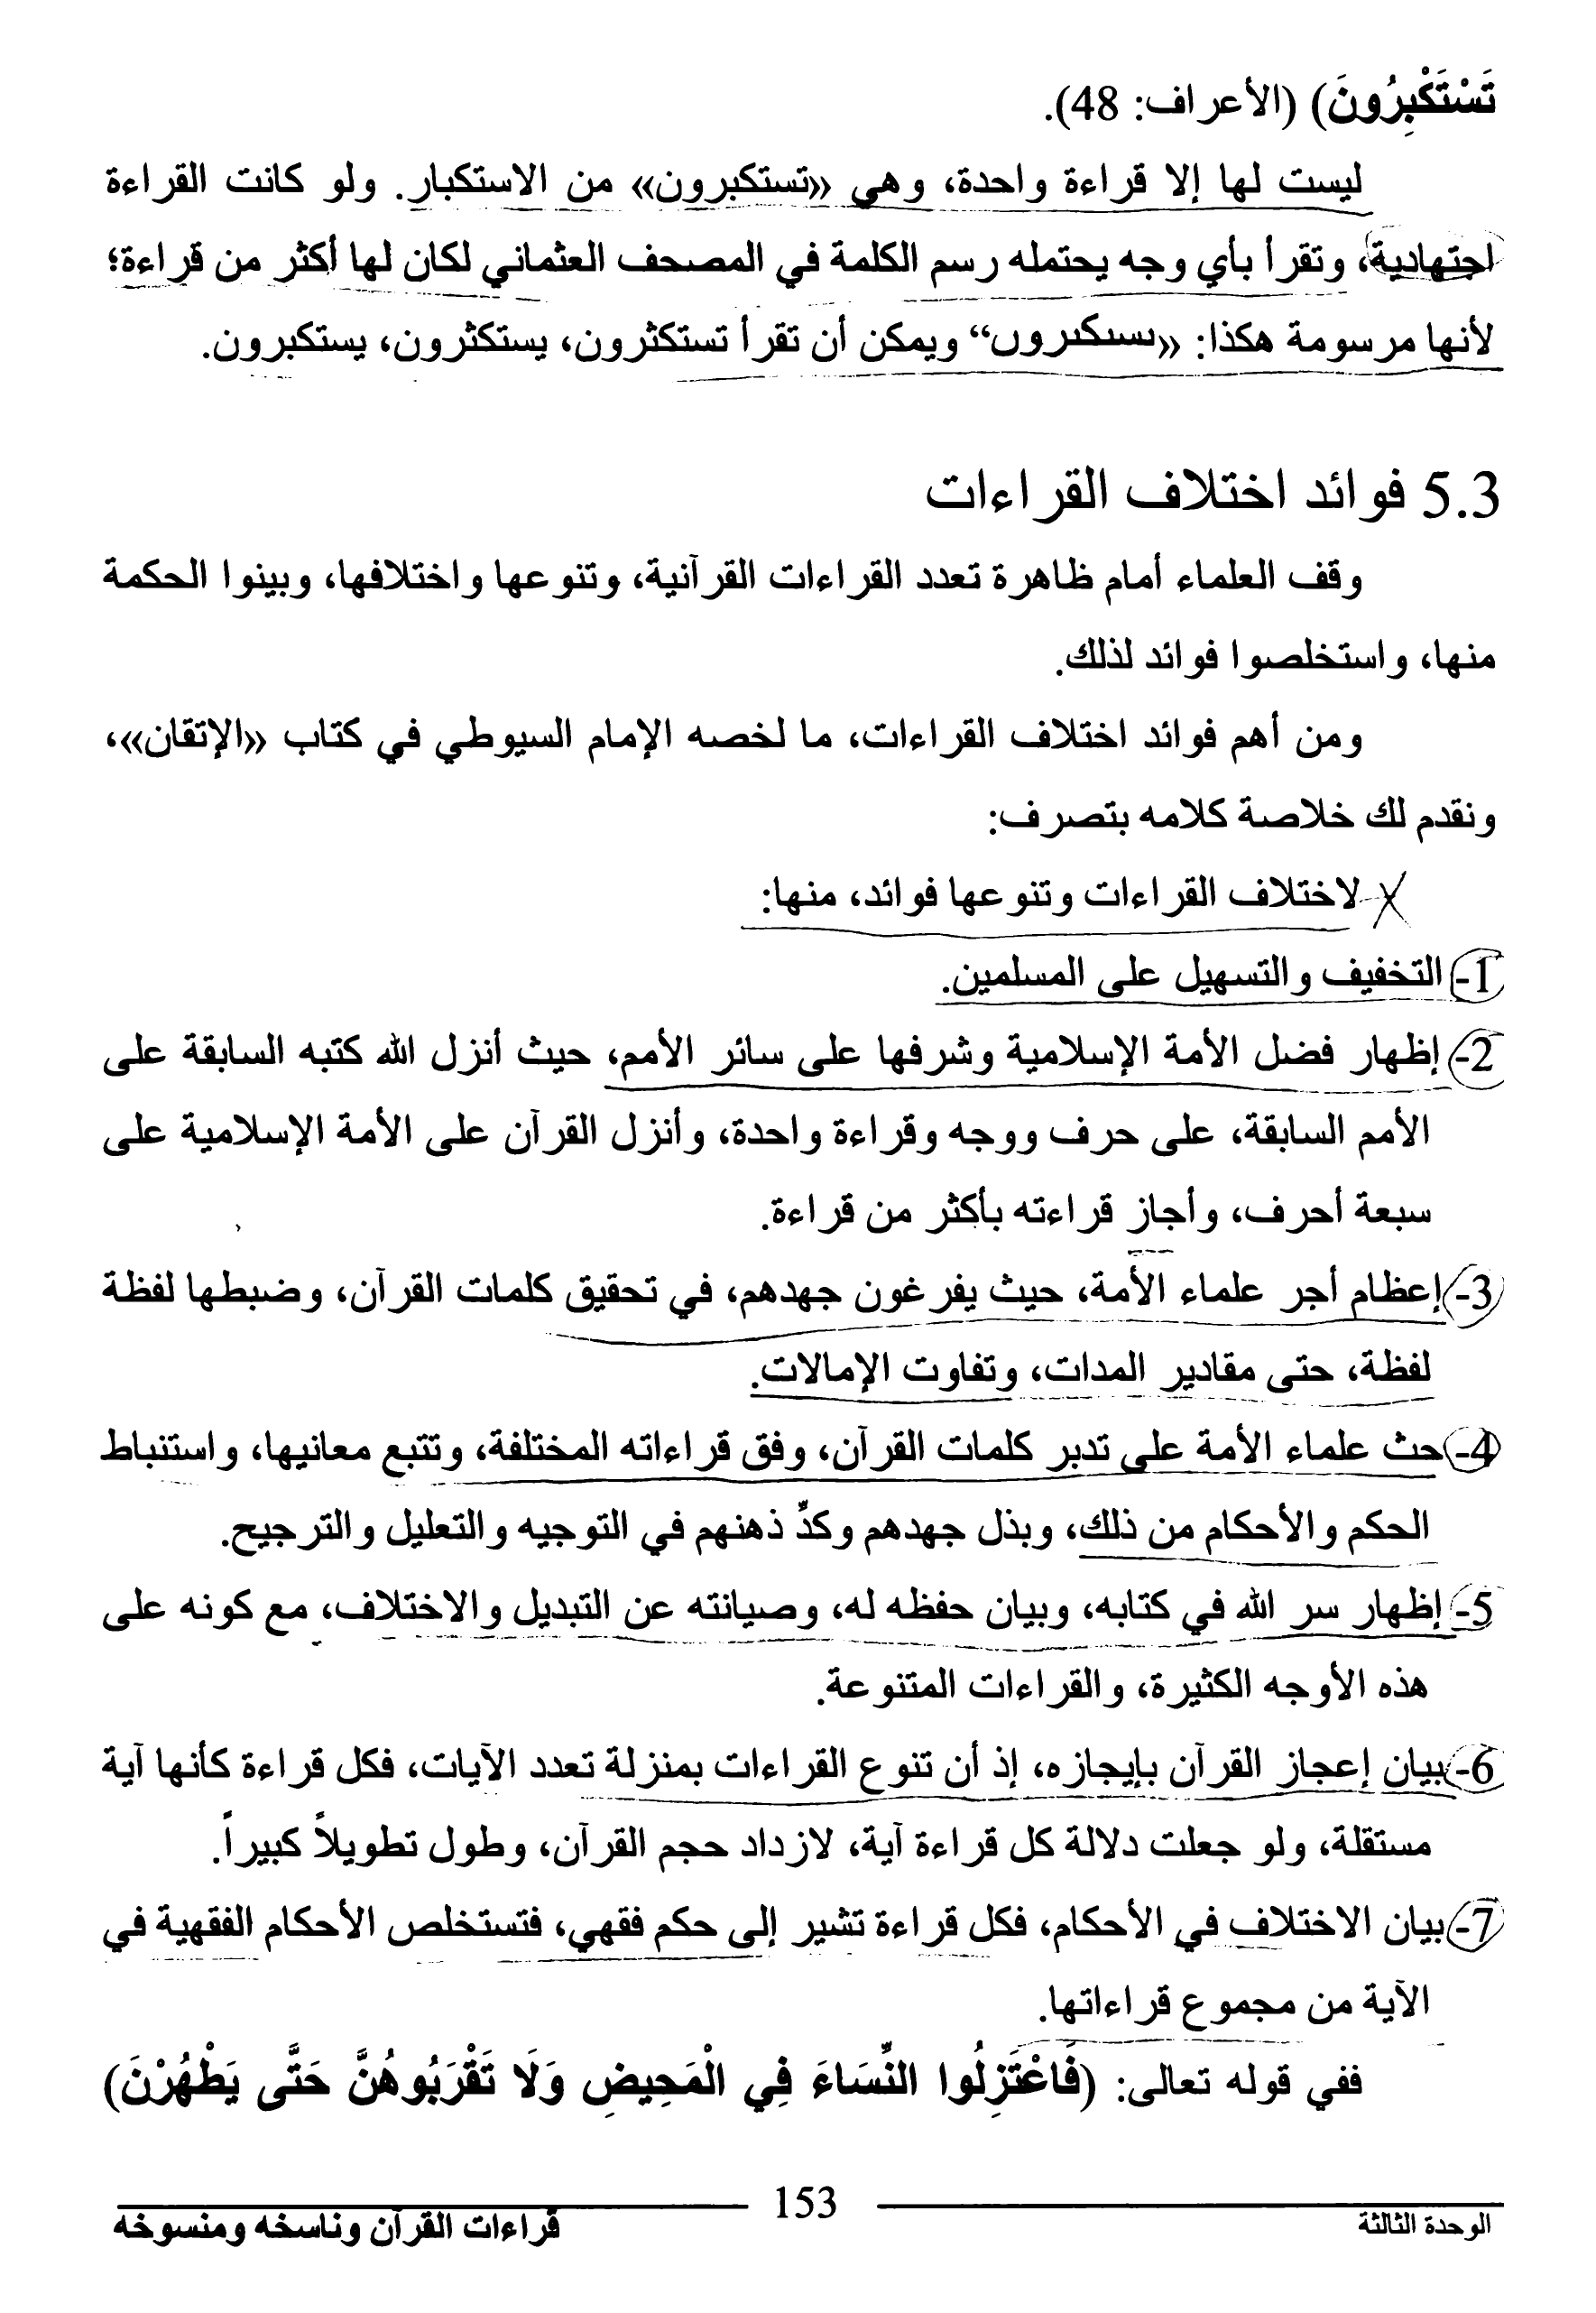 تَسْتَكْبِرُونَ) (الأعراف: 48).
ليست لها إلا قراءة واحدة، وهي «تستكبرون» من الاستكبار. ولو كانت القراءة
اجتهادية، وتقرأ بأي وجه يحتمله رسم الكلمة في المصحف العثماني لكان لها أكثر من قراءة؛
لأنها مرسومة هكذا: «ٮسٮكٮروں“ ويمكن أن تقرأ تستكثرون، يستكثرون، يستكبرون.
5.3 فوائد اختلاف القراءات
وقف العلماء أمام ظاهرة تعدد القراءات القرآنية، وتنوعها واختلافها، وبينوا الحكمة
منها، واستخلصوا فوائد لذلك.
ومن أهم فوائد اختلاف القراءات، ما لخصه الإمام السيوطي في كتاب «الإتقان»،
ونقدم لك خلاصة كلامه بتصرف:
لاختلاف القراءات وتنوعها فوائد، منها:
1- التخفيف والتسهيل على المسلمين.
2- إظهار فضل الأمة الإسلامية وشرفها على سائر الأمم، حيث أنزل الله كتبه السابقة على
الأمم السابقة، على حرف ووجه وقراءة واحدة، وأنزل القرآن على الأمة الإسلامية على
سبعة أحرف، وأجاز قراءته بأكثر من قراءة.
3- إعظام أجر علماء الأمة، حيث يفرغون جهدهم، في تحقيق كلمات القرآن، وضبطها لفظة
لفظة، حتى مقادير المدات، وتفاوت الإمالات.
4- حث علماء الأمة على تدبر كلمات القرآن، وفق قراءاته المختلفة، وتتبع معانيها، واستنباط
الحكم والأحكام من ذلك، وبذل جهدهم وكدِّ ذهنهم في التوجيه والتعليل والترجيح.
5- إظهار سر الله في كتابه، وبيان حفظه له، وصيانته عن التبديل والاختلاف، مع كونه على
هذه الأوجه الكثيرة، والقراءات المتنوعة.
6- بيان إعجاز القرآن بإيجازه، إذ أن تنوع القراءات بمنزلة تعدد الآيات، فكل قراءة كأنها آية
مستقلة، ولو جعلت دلالة كل قراءة آية، لازداد حجم القرآن، وطول تطويلاً كبيراً.
7- بيان الاختلاف في الأحكام، فكل قراءة تشير إلى حكم فقهي، فتستخلص الأحكام الفقهية في
الآية من مجموع قراءاتها.
ففي قوله تعالى: (فَاعْتَزِلُوا النِّسَاءَ فِي الْمَحِيضِ وَلَا تَقْرَبُوهُنَّ حَتَّى يَطْهُرْنَ)
الوحدة الثالثة 153 قراءات القرآن وناسخه ومنسوخه